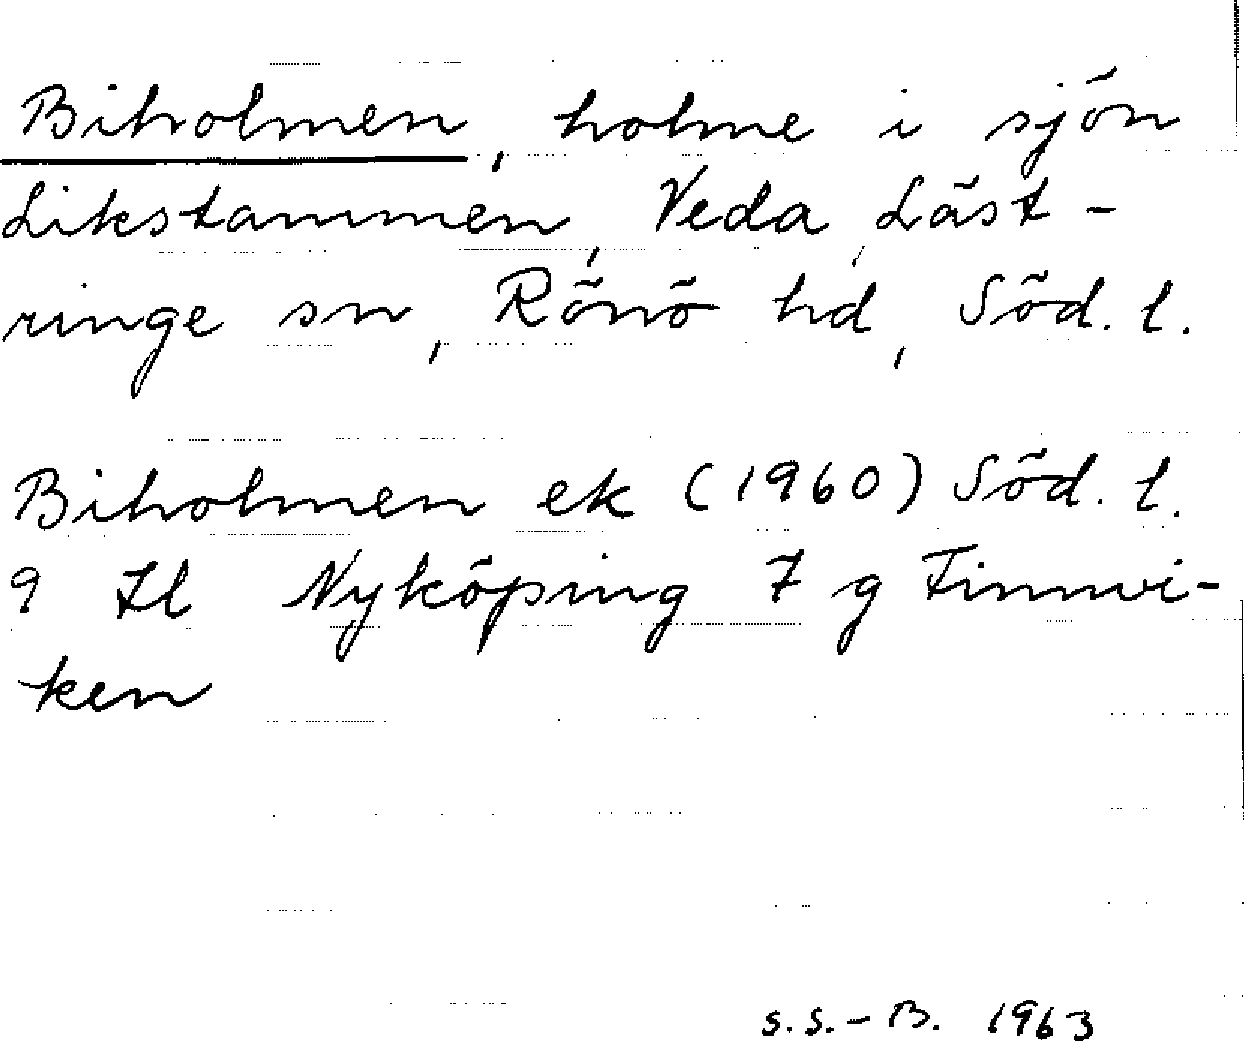 Biholmen, holme i sjön
Likstammen, Veda, Läst-
ringe sn, Rönö hd, Söd. l.
Biholmen ek (1960) Söd. l.
9 Il Nyköping 7 g Finnvi-
ken
S. S.-B. 1963